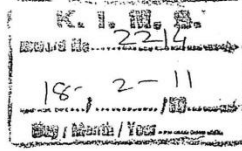 K. I. M. S.
No 2214
18- 2-11
Day / Month / Year